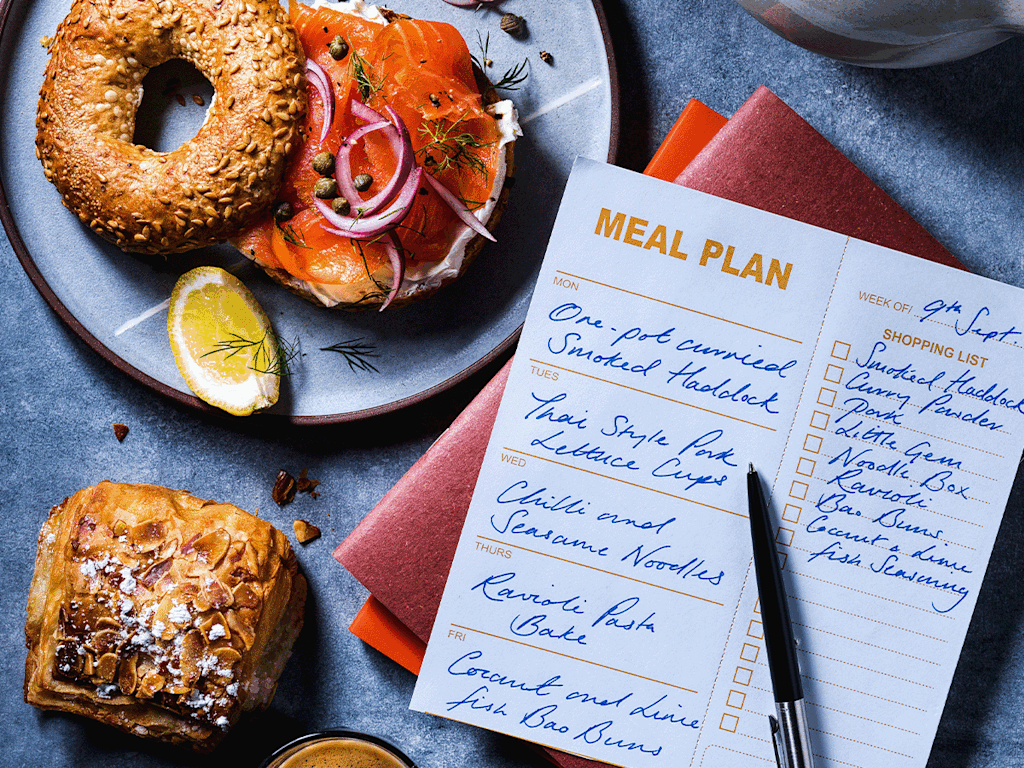 MEAL PLAN
MON
One-pot curried
Smoked Haddock
TUES
Thai Style Pork
Lettuce Cups
WED
Chilli and
Seasame Noodles
THURS
Ravioli Pasta
Bake
FRI
Coconut and Lime
fish Bao Buns
WEEK OF: 9th Sept.
SHOPPING LIST
Smoked Haddock
Curry Powder
Pork
Little Gem
Noodle Box
Ravioli
Bao Buns
Coconut & Lime
fish Seasoning